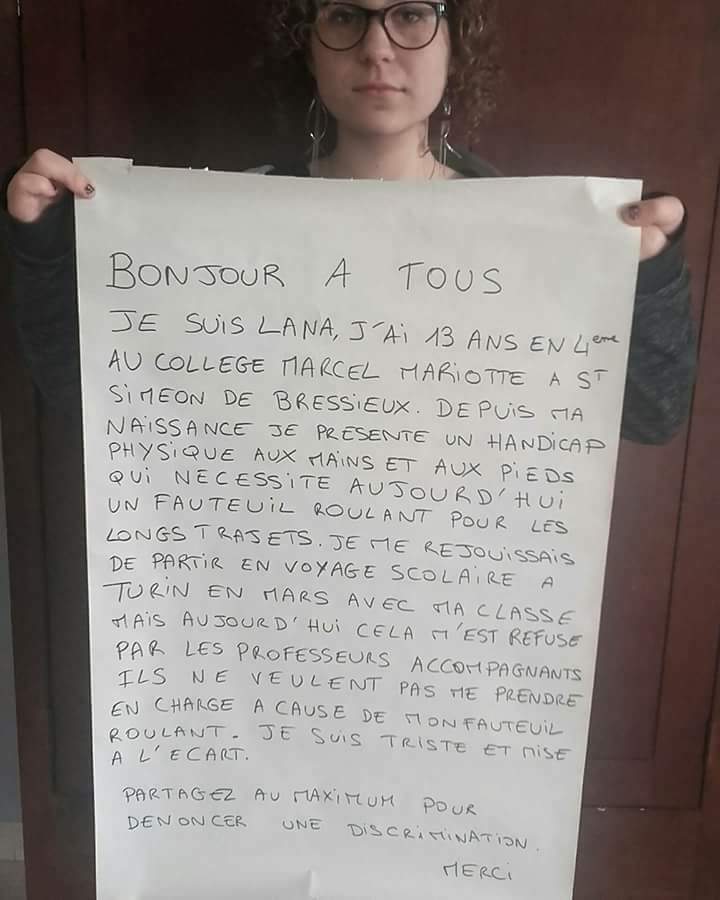 BONJOUR A TOUS
JE SUIS LANA, J'AI 13 ANS EN 4eme
AU COLLEGE MARCEL MARIOTTE A ST
SIMEON DE BRESSIEUX. DEPUIS MA
NAISSANCE JE PRESENTE UN HANDICAP
PHYSIQUE AUX MAINS ET AUX PIEDS
QUI NECESSITE AUJOURD'HUI
UN FAUTEUIL ROULANT POUR LES
LONGS TRAJETS. JE ME REJOUISSAIS
DE PARTIR EN VOYAGE SCOLAIRE A
TURIN EN MARS AVEC MA CLASSE
MAIS AUJOURD'HUI CELA M'EST REFUSE
PAR LES PROFESSEURS ACCOMPAGNANTS
ILS NE VEULENT PAS ME PRENDRE
EN CHARGE A CAUSE DE MON FAUTEUIL
ROULANT. JE SUIS TRISTE ET MISE
A L'ECART.
PARTAGEZ AU MAXIMUM POUR
DENONCER UNE DISCRIMINATION.
MERCI